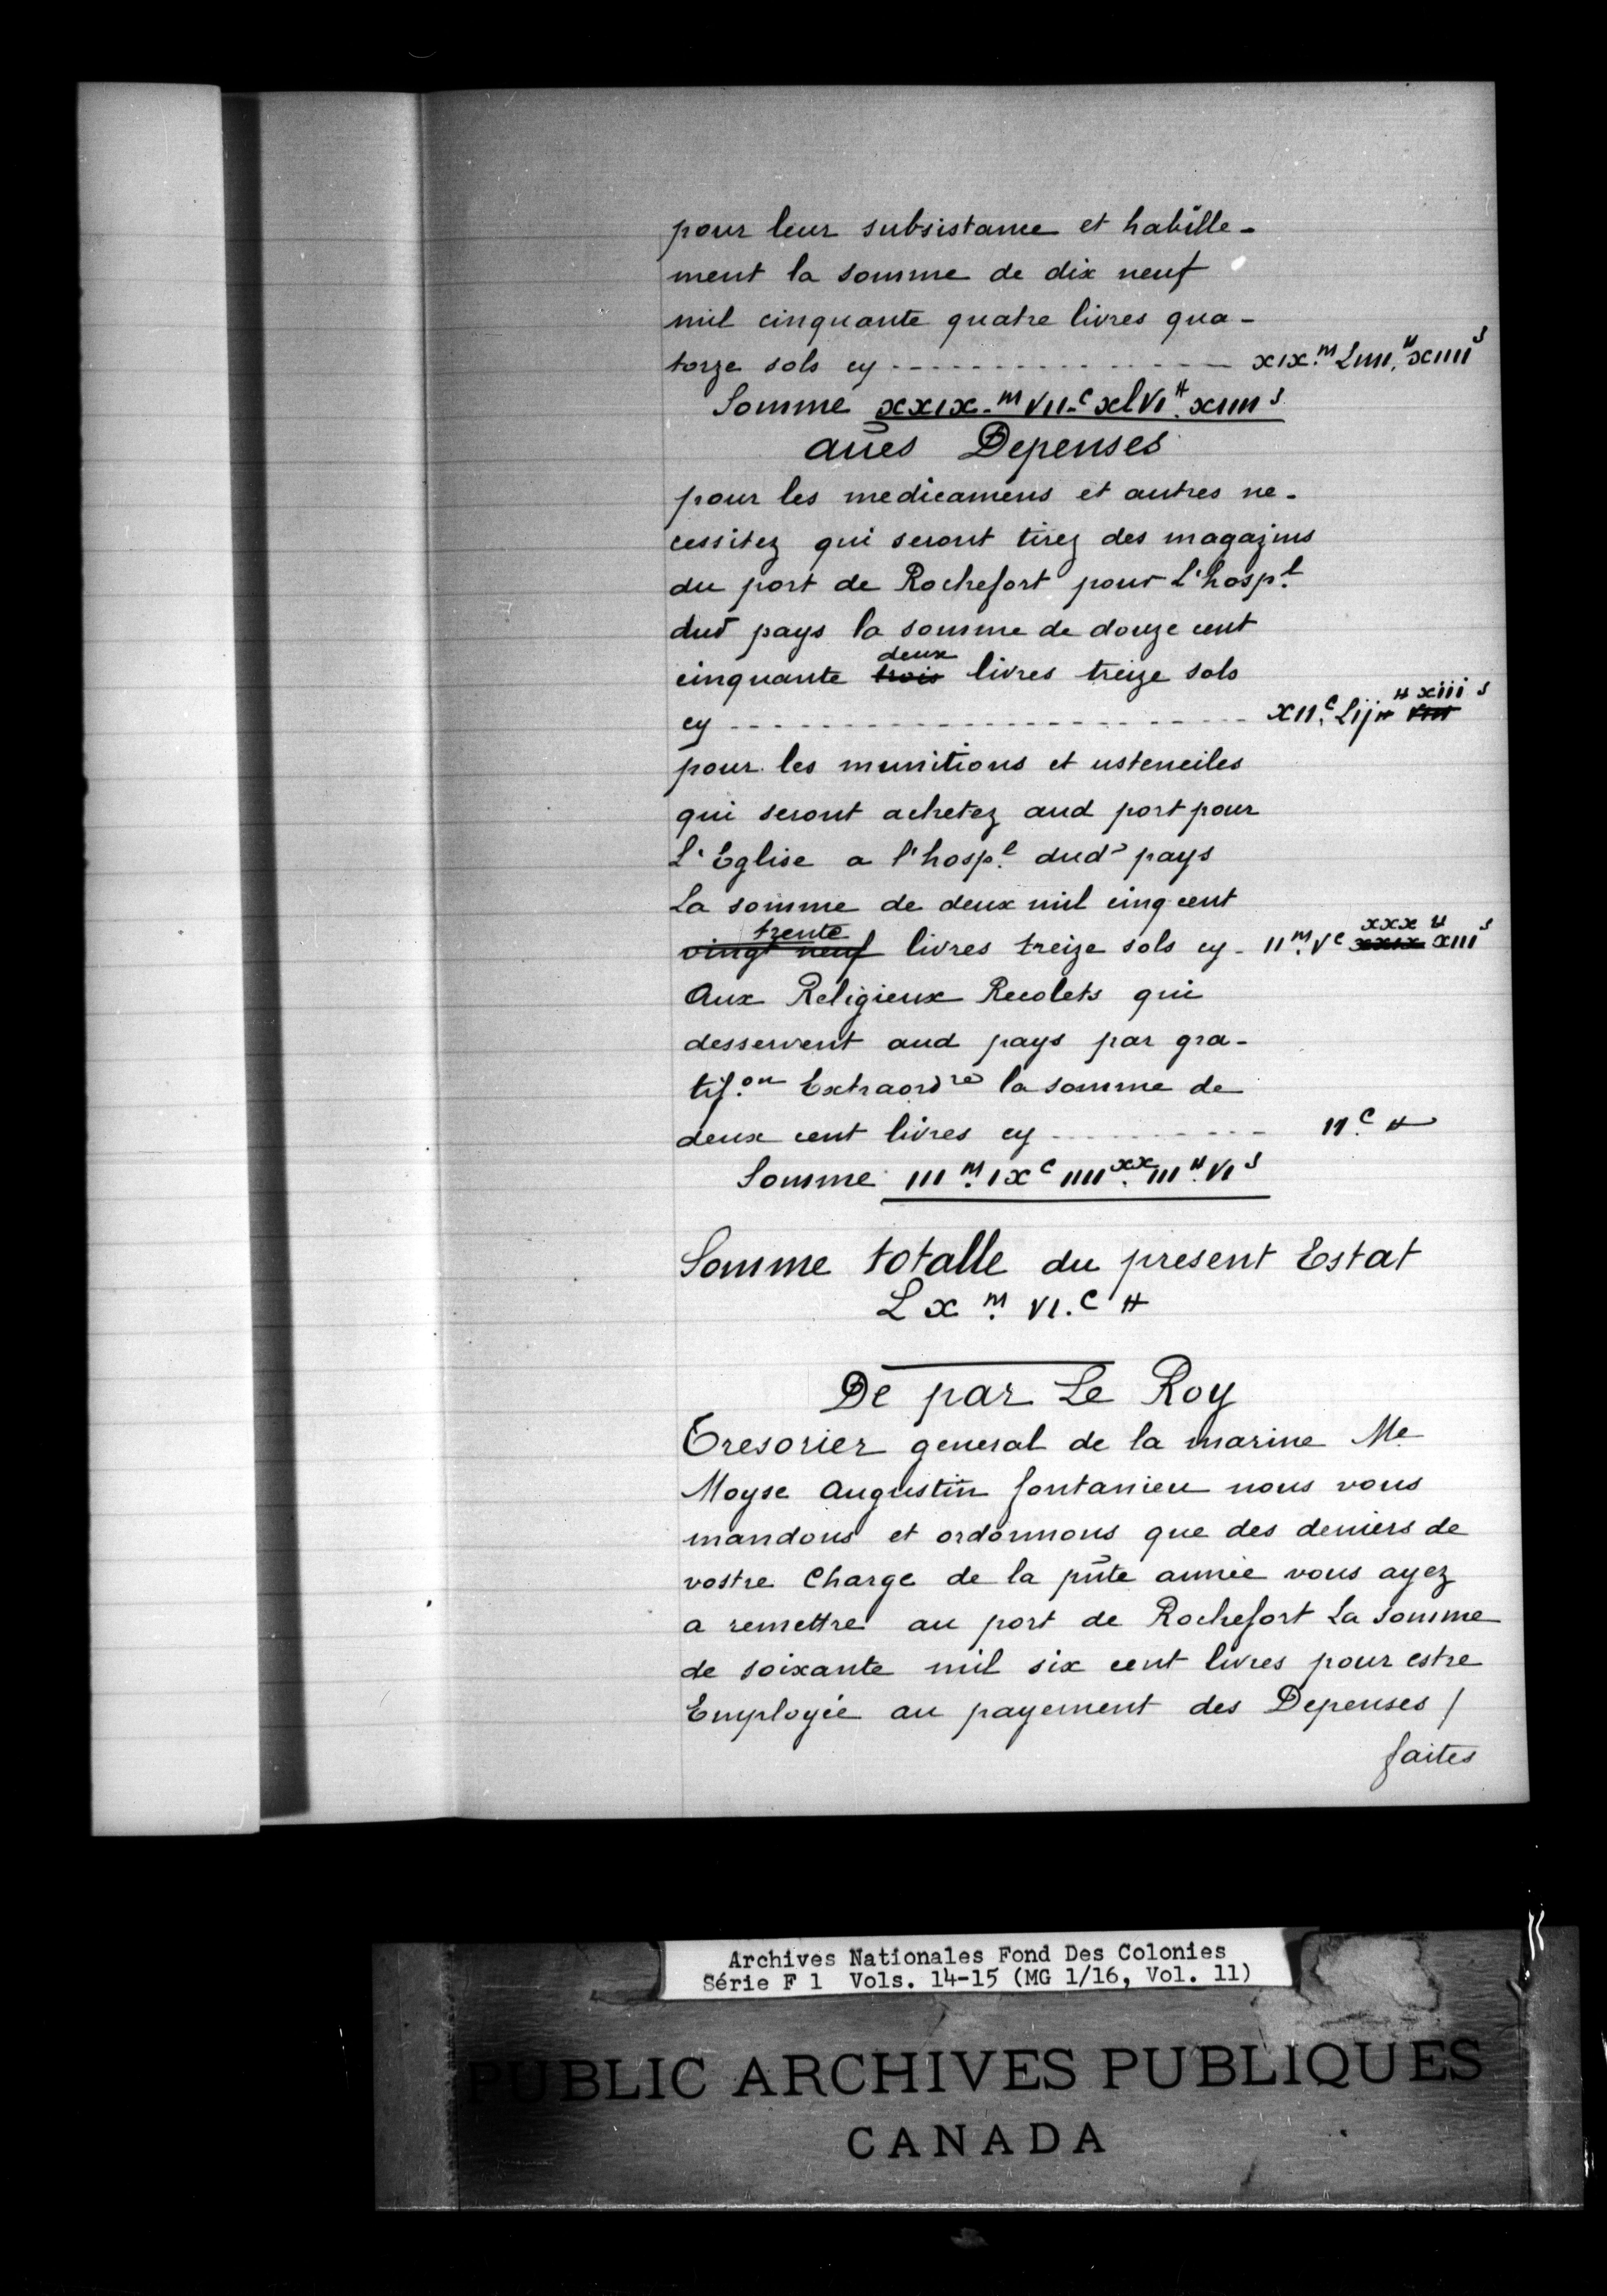 pour leur subsistance et habille-
ment la somme de dix neuf
mil cinquante quatre livres qua-
torze sols cy ---------------- xix.m Liiii.# xiiii s
Somme xxix.m vii.c xlvi# xiiii s
aues Depenses
pour les medicamens et autres ne-
cessitez qui seront tirez des magazins
du port de Rochefort pour L'hosp.l
dud pays la somme de douze cent
cinquante ~~trois~~ deux livres treize sols
cy ---------------- xii.c Lij# ~~viii~~ xiii s
pour les munitions et usteneiles
qui seront achetez aud port pour
L'Eglise a l'hosp.l dud pays
La somme de deux mil cinq cent
~~vingt neuf~~ trente livres treize sols cy - ii.m v c ~~xxix~~ xxx# xiii s
Aux Religieux Recolets qui
desservent aud pays par gra-
tif.on Extraord re la somme de
deux cent livres cy ---------- ii.c #
Somme iii.m ix c iiii xx iii# vi s
Somme totalle du present Estat
L x.m vi.c #
De par Le Roy
Tresorier general de la marine Me
Moyse Augustin fontanieu nous vous
mandons et ordonnons que des deniers de
vostre Charge de la pñte année vous ayez
a remettre au port de Rochefort La somme
de soixante mil six cent livres pour estre
Employée au payement des Depenses /
faites
Archives Nationales Fond Des Colonies
Série F 1 Vols. 14-15 (MG 1/16, Vol. 11)
PUBLIC ARCHIVES PUBLIQUES
CANADA